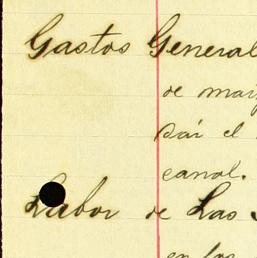 Gastos General
de mai
sai el
canal.
Labor de Las
en los